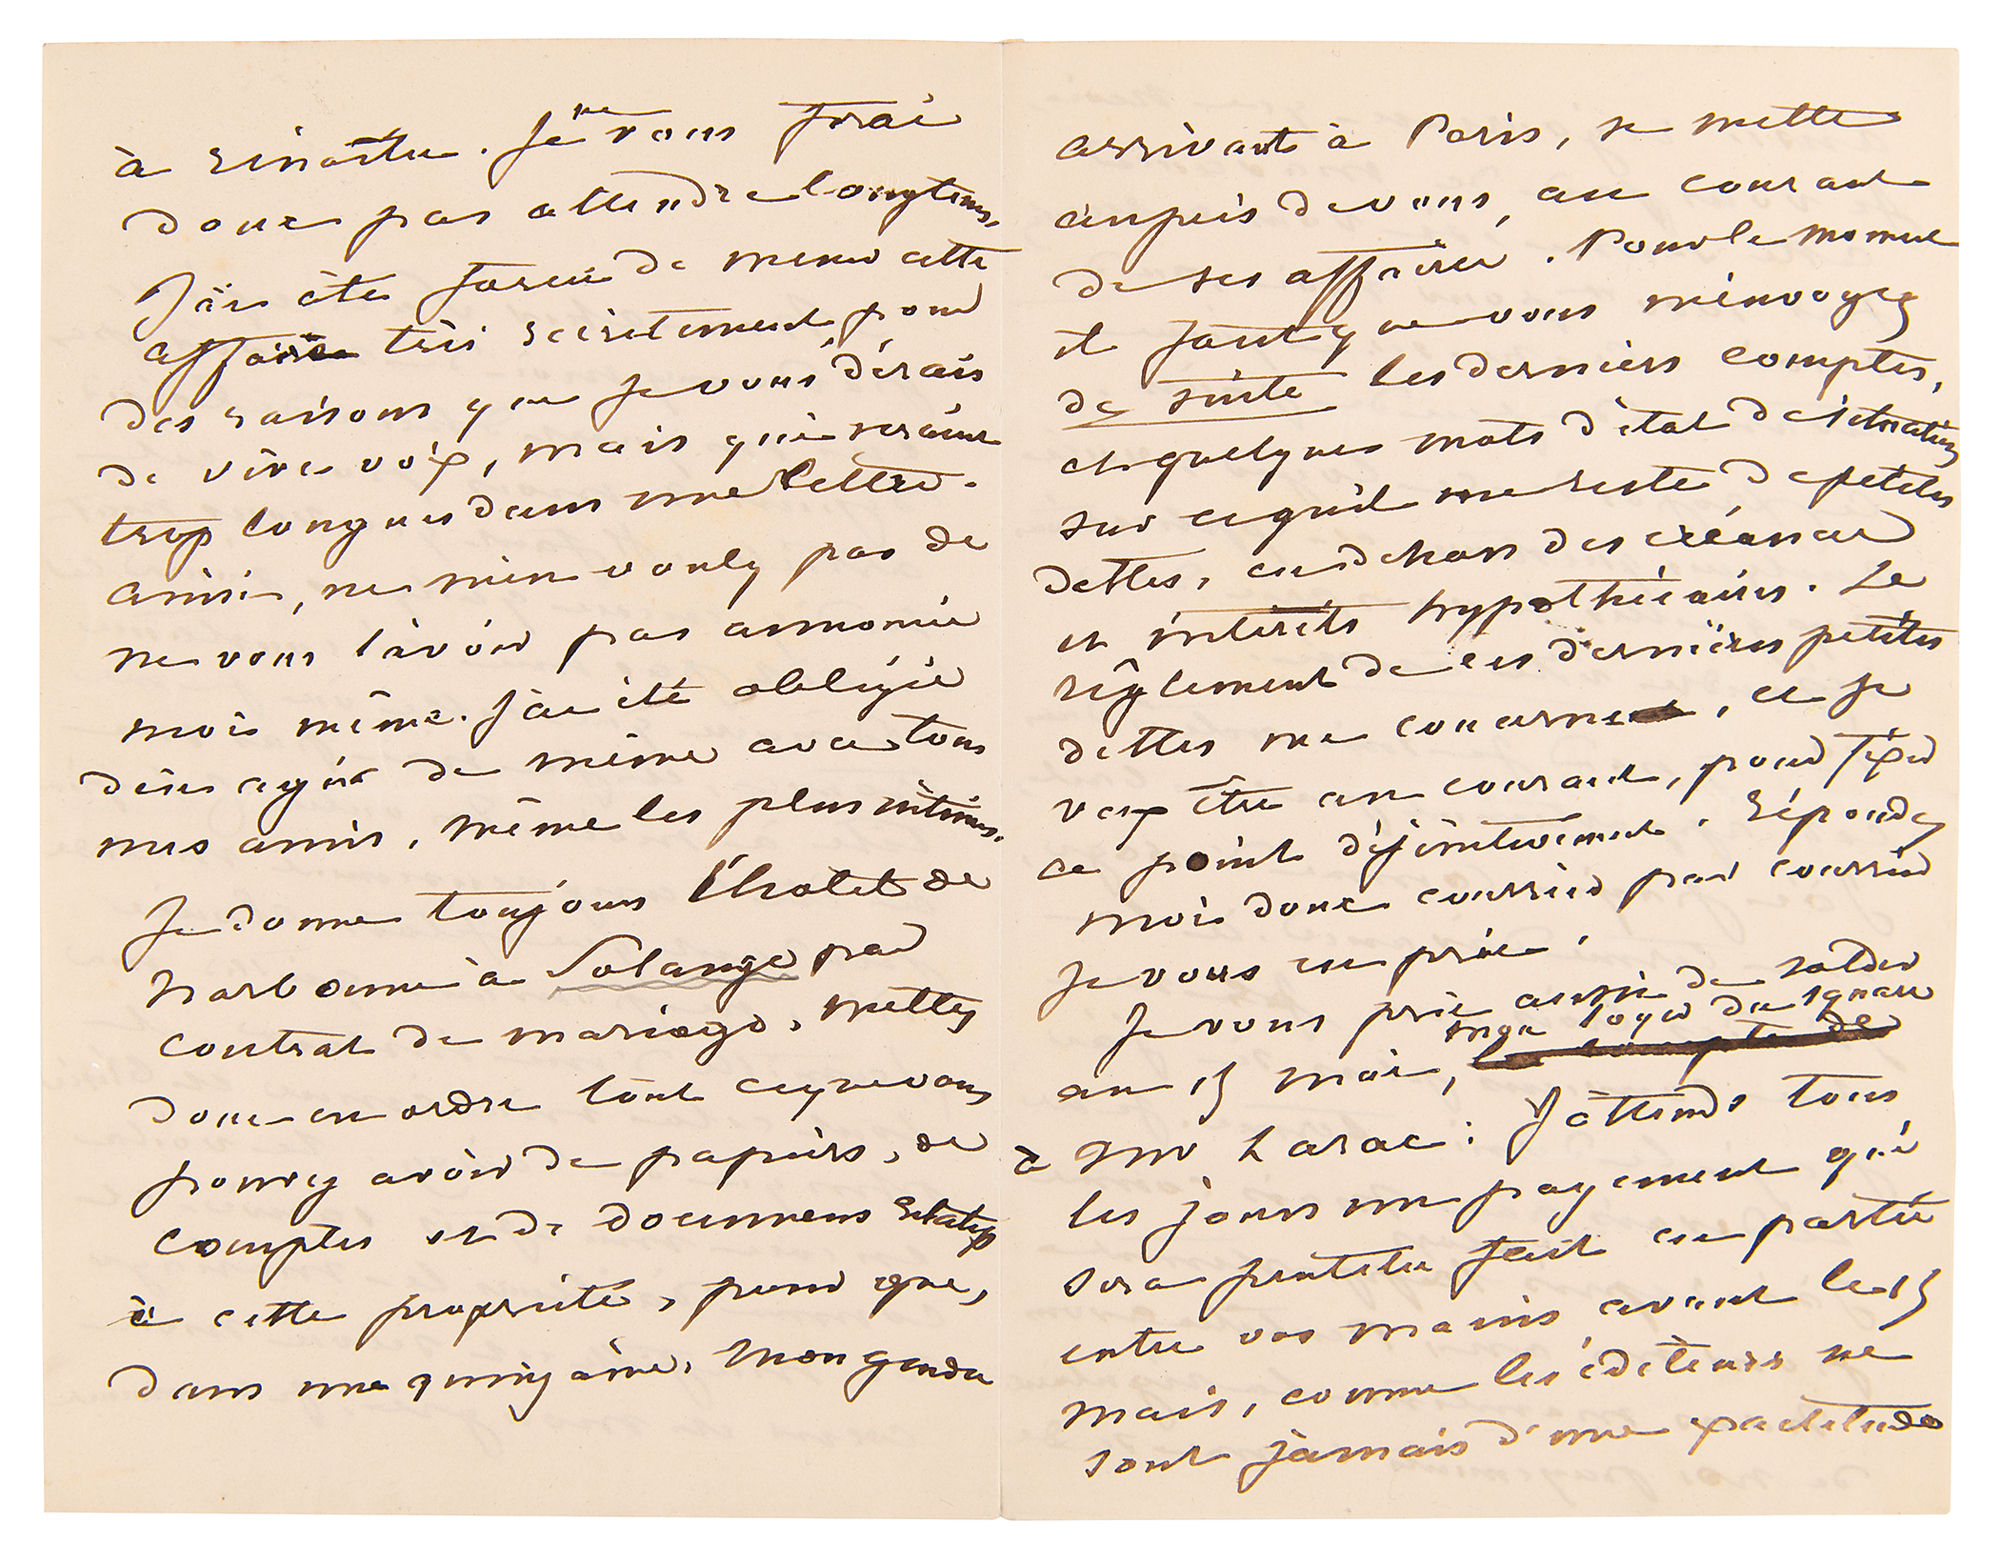 à . Je ne vous ferai
donc pas attendre longtems.
J'ai été forcée de mener cette
affaire très secrètement, pour
des raisons que je vous dirais
de vive voix, mais qui seraient
trop longues dans une lettre.
ainsi, ne m'en voulez pas de
ne vous l'avoir pas annoncée
moi même. J'ai été obligée
d'en agir de même avec tous
mes amis, même les plus intimes.
Je donne toujours l'hotel de
Narbonne à Solange par
contrat de mariage, mettez
donc en ordre tout ce que vous
pouvez avoir de papiers, de
comptes et de documens relatifs
à cette propriété, pour que,
dans une quinzaine, mon gendre
arrivant à Paris, se mette
auprès de vous, au courant
de ses affaires. Pour le moment
il faut que vous m'envoyez
de suite les derniers comptes,
et quelques mots d'état de situation
sur ce qu'il me reste de petites
dettes, en dehors des créances
et intérêts hypothécaires. Le
règlement de ces dernières petites
dettes me concerne, et je
veux être au courant, pour fixer
ce point définitivement. Répondez
moi donc courrier par courrier
je vous en prie.
Je vous prie aussi de solder
au 15 mai, mon loyer du square
à Mr Larac: J'attends tous
les jours un payement qui
sera peutetre fait en partie
entre vos mains avant le 15
mais, comme les éditeurs ne
sont jamais d'une exactitude